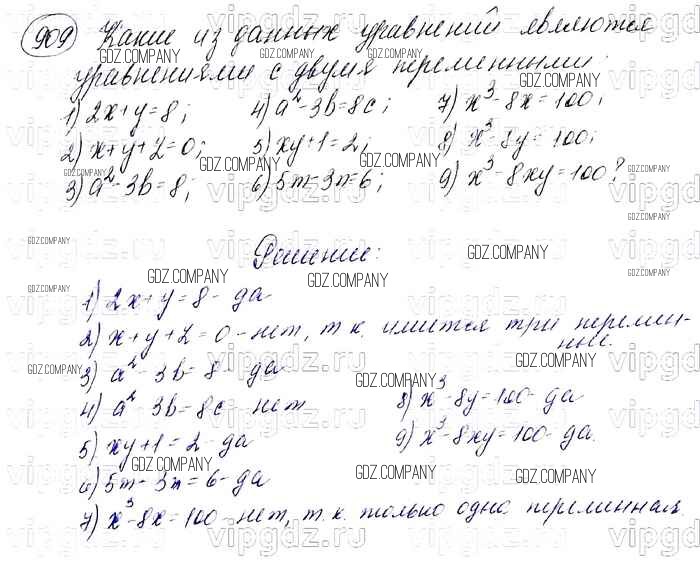 909 Какие из данных уравнений являются
уравнениями с двумя переменными:
1) 2x+y=8; 4) a²-3b=8c; 7) x³-8x=100;
2) x+y+z=0; 5) xy+1=2; 8) x³-8y=100;
3) a²-3b=8; 6) 5m-3n=6; 9) x³-8xy=100?
Решение:
1) 2x+y=8 - да
2) x+y+z=0 - нет, т.к. имется три перемен-
ные.
3) a²-3b=8 - да
4) a²-3b=8c - нет
5) xy+1=2 - да
6) 5m-3n=6 - да
7) x³-8x=100 - нет, т.к. только одна переменная.
8) x³-8y=100 - да
9) x³-8xy=100 - да.
GDZ.COMPANY
vipgdz.ru